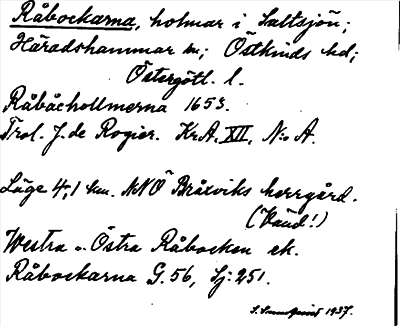 Råbockarna, holmar i Saltsjön;
Häradshammar sn; Östkinds hd;
Östergötl. l.
Råbåcholmerna 1653.
Trol. J. de Rogier. KrA, XII, N:o A.
Läge 4,1 km. NNÖ Bråxviks herrgård.
(Känd!)
Westra o. Östra Råbocken ek.
Råbockarna G. 56, Sj: 251.
1937.